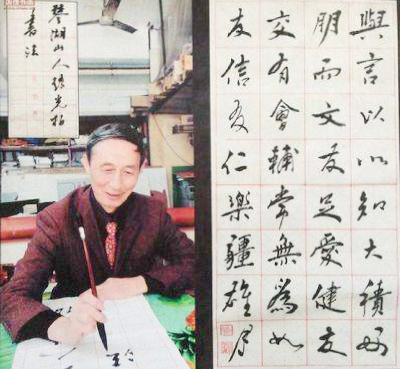 琴湖山人張光柏
書法
與朋交友
言而有信
以文會友
以友輔仁
知足常樂
大愛無疆
積健為雄
好友如月